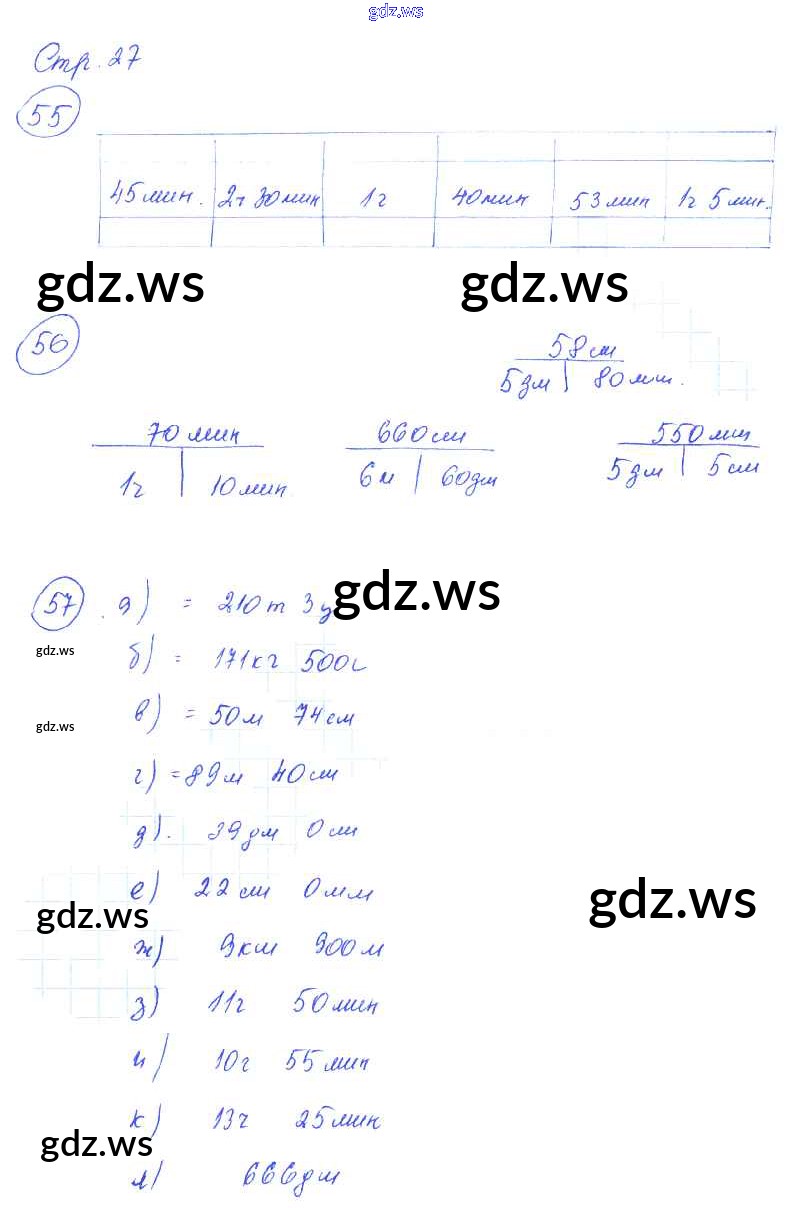 gdz.ws
Стр. 27
55
45 мин. 2ч 30 мин 1ч 40 мин 53 мин 1ч 5 мин.
gdz.ws gdz.ws
56
58 см
5 дм 80 мм.
70 мин 660 см 550 мм
1ч 10 мин 6 м 60 дм 5 дм 5 см
57. а) = 210 т 3 ц
gdz.ws
gdz.ws
б) = 171 кг 500 г
в) = 50 м 74 см
gdz.ws
г) = 89 м 40 см
д). 39 дм 0 см
е) 22 см 0 мм
gdz.ws
gdz.ws
ж) 9 км 900 м
з) 11ч 50 мин
и) 10ч 55 мин
к) 13ч 25 мин
gdz.ws
л) 666 дм